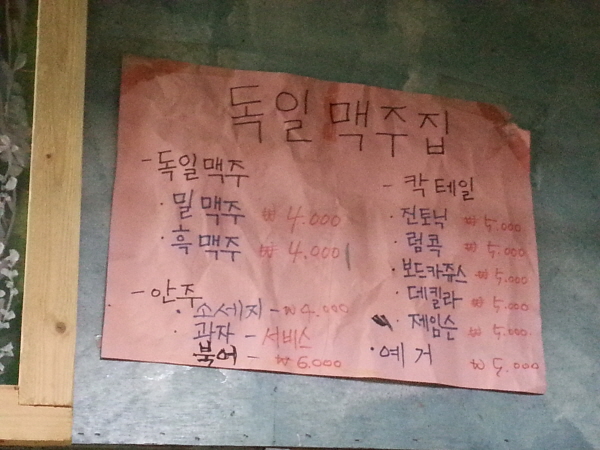 독일 맥주집
- 독일맥주
· 밀 맥주 ₩ 4.000
· 흑 맥주 ₩ 4.000
- 안주
· 소세지 - ₩4.000
· 과자 - 서비스
북어 - ₩ 6.000
- 칵테일
· 진토닉 ₩ 5.000
· 럼콕 ₩ 5.000
· 보드카쥬스 ₩ 5.000
· 데킬라 ₩ 5.000
· 제임슨 ₩ 5.000
· 예거 ₩ 5.000